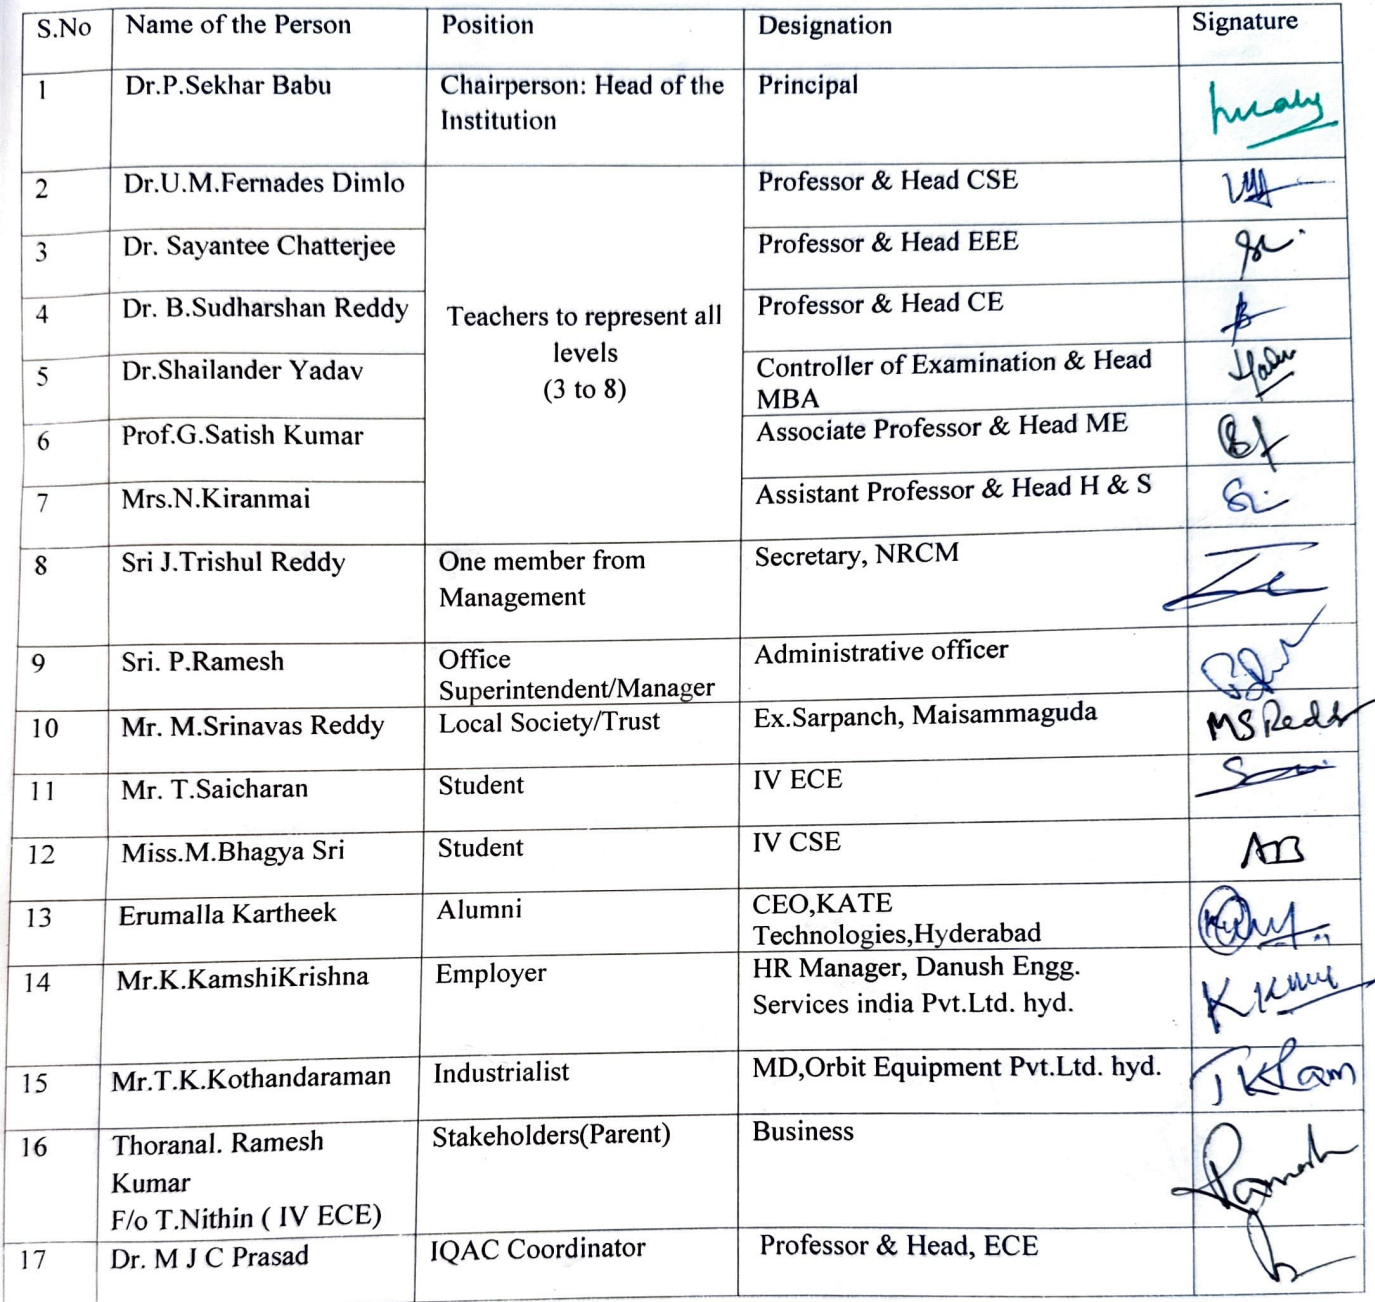 S.No Name of the Person Position Designation Signature
1 Dr.P.Sekhar Babu Chairperson: Head of the Principal
Institution
2 Dr.U.M.Fernades Dimlo Professor & Head CSE
3 Dr. Sayantee Chatterjee Professor & Head EEE
4 Dr. B.Sudharshan Reddy Professor & Head CE
Teachers to represent all
levels
(3 to 8)
5 Dr.Shailander Yadav Controller of Examination & Head
MBA
6 Prof.G.Satish Kumar Associate Professor & Head ME
7 Mrs.N.Kiranmai Assistant Professor & Head H & S
8 Sri J.Trishul Reddy One member from Secretary, NRCM
Management
9 Sri. P.Ramesh Office Administrative officer
Superintendent/Manager
10 Mr. M.Srinavas Reddy Local Society/Trust Ex.Sarpanch, Maisammaguda MS Reddy
11 Mr. T.Saicharan Student IV ECE
12 Miss.M.Bhagya Sri Student IV CSE
13 Erumalla Kartheek Alumni CEO,KATE
Technologies,Hyderabad
14 Mr.K.KamshiKrishna Employer HR Manager, Danush Engg.
Services india Pvt.Ltd. hyd.
15 Mr.T.K.Kothandaraman Industrialist MD,Orbit Equipment Pvt.Ltd. hyd.
16 Thoranal. Ramesh Stakeholders(Parent) Business Ramesh
Kumar
F/o T.Nithin ( IV ECE)
17 Dr. M J C Prasad IQAC Coordinator Professor & Head, ECE